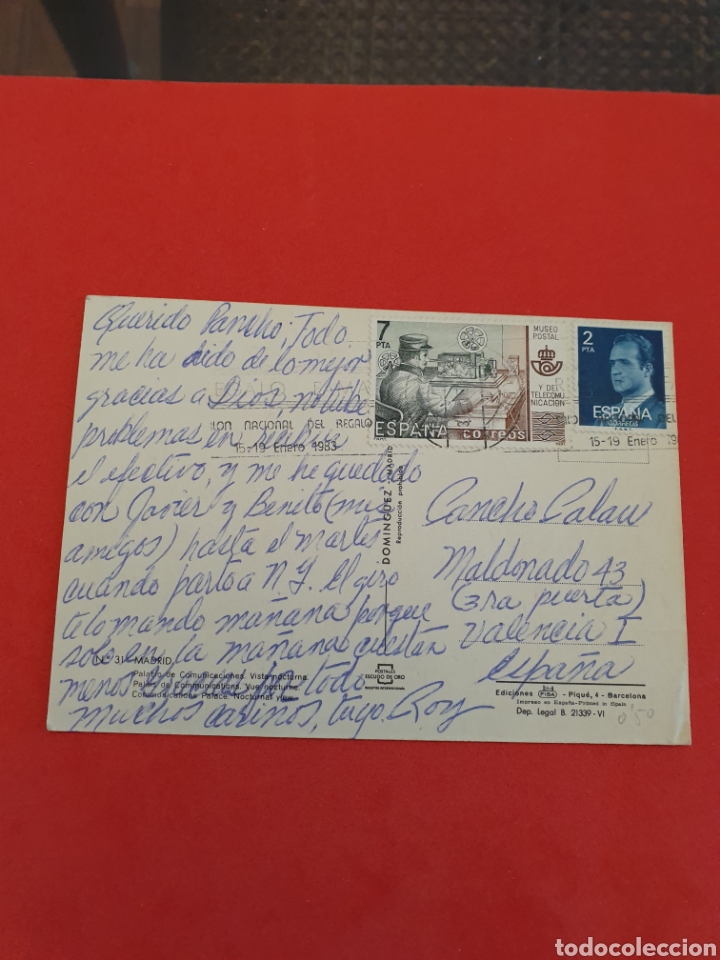 Querido Pancho, Todo
me ha sido de lo mejor
gracias a Dios, no tube
problemas en recibir
el efectivo, y me he quedado
con Javier y Benito (mis
amigos) hasta el martes
cuando parto a N.Y. El giro
te lo mando mañana porque
solo en la mañana cuestan
menos por todo
Muchos cariños, tuyo. Roy
Nº 31 - MADRID.
Palacio de Comunicaciones. Vista nocturna.
Palais de Communications. Vue nocturne.
Communications Palace. Nocturnal view.
7
PTA
MUSEO
POSTAL
Y DE
TELECOMU
NICACION
ESPAÑA
correos
2
PTA
ESPAÑA
CORREOS
ION NACIONAL DEL REGALO
15-19 Enero 1983
NACIONAL DEL
15-19 Enero 19
DOMINGUEZ MADRID
Reproducción prohibida
Pancho Calau
Maldonado 43
(3ra puerta)
Valencia I
España
POSTALES
ESCUDO DE ORO
REGISTRO INTERNACIONAL
Ediciones FISA - Piqué, 4 - Barcelona
Impreso en España-Printed in Spain
Dep. Legal B. 21339-VI
0'50
todocoleccion